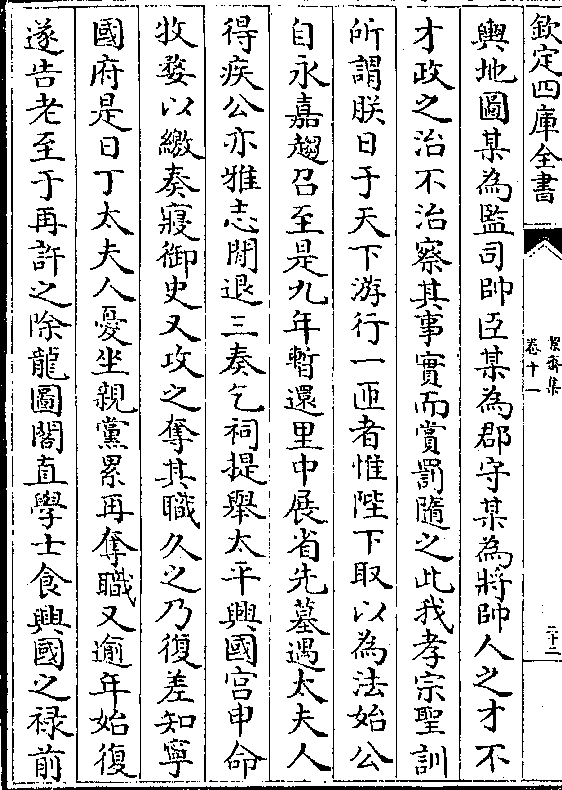 欽定四庫全書
絜齋集
卷十一
二十三
輿地圖某為監司帥臣某為郡守某為將帥人之才不
才政之治不治察其事實而賞罰隨之此我孝宗聖訓
所謂朕日于天下游行一匝者惟陛下取以為法始公
自永嘉趨召至是九年暫還里中展省先墓遇太夫人
得疾公亦雅志閒退三奏乞祠提舉太平興國宫申命
牧婺以繳奏寢御史又攻之奪其職久之乃復差知寧
國府是日丁太夫人憂坐親黨累再奪職又逾年始復
遂告老至于再許之除龍圖閣直學士食興國之祿前